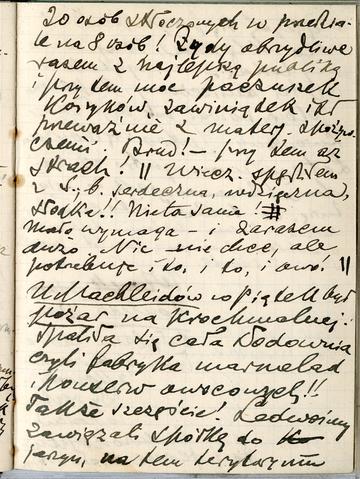 20 osób stłoczonych w przedzia-
le na 8 osób! Żydy obrzydliwe
razem z najlepszą publiką
i przytem moc paczuszek
Koszyków, zawiniątek itd
przeważnie z mater. spożyw-
czemi. Brud! — przytem aż
strach! || Wiecz. spędziłem
z serdeczna, wdzięczna,
słodka!! Nieta sama! #
mało wymaga — i zarazem
dużo. Nic nie chce, ale
potrzebuje i to, i to, i owo! ||
U Machleidów w Piątek był
pożar na Krochmalnej!
Spaliła się cała Słodownia
czyli fabryka marmelad
i Konserw owocowych!!
Także szczęście. Ledwośmy
zawiązali spółkę do
jarzyn, na tem terytorium